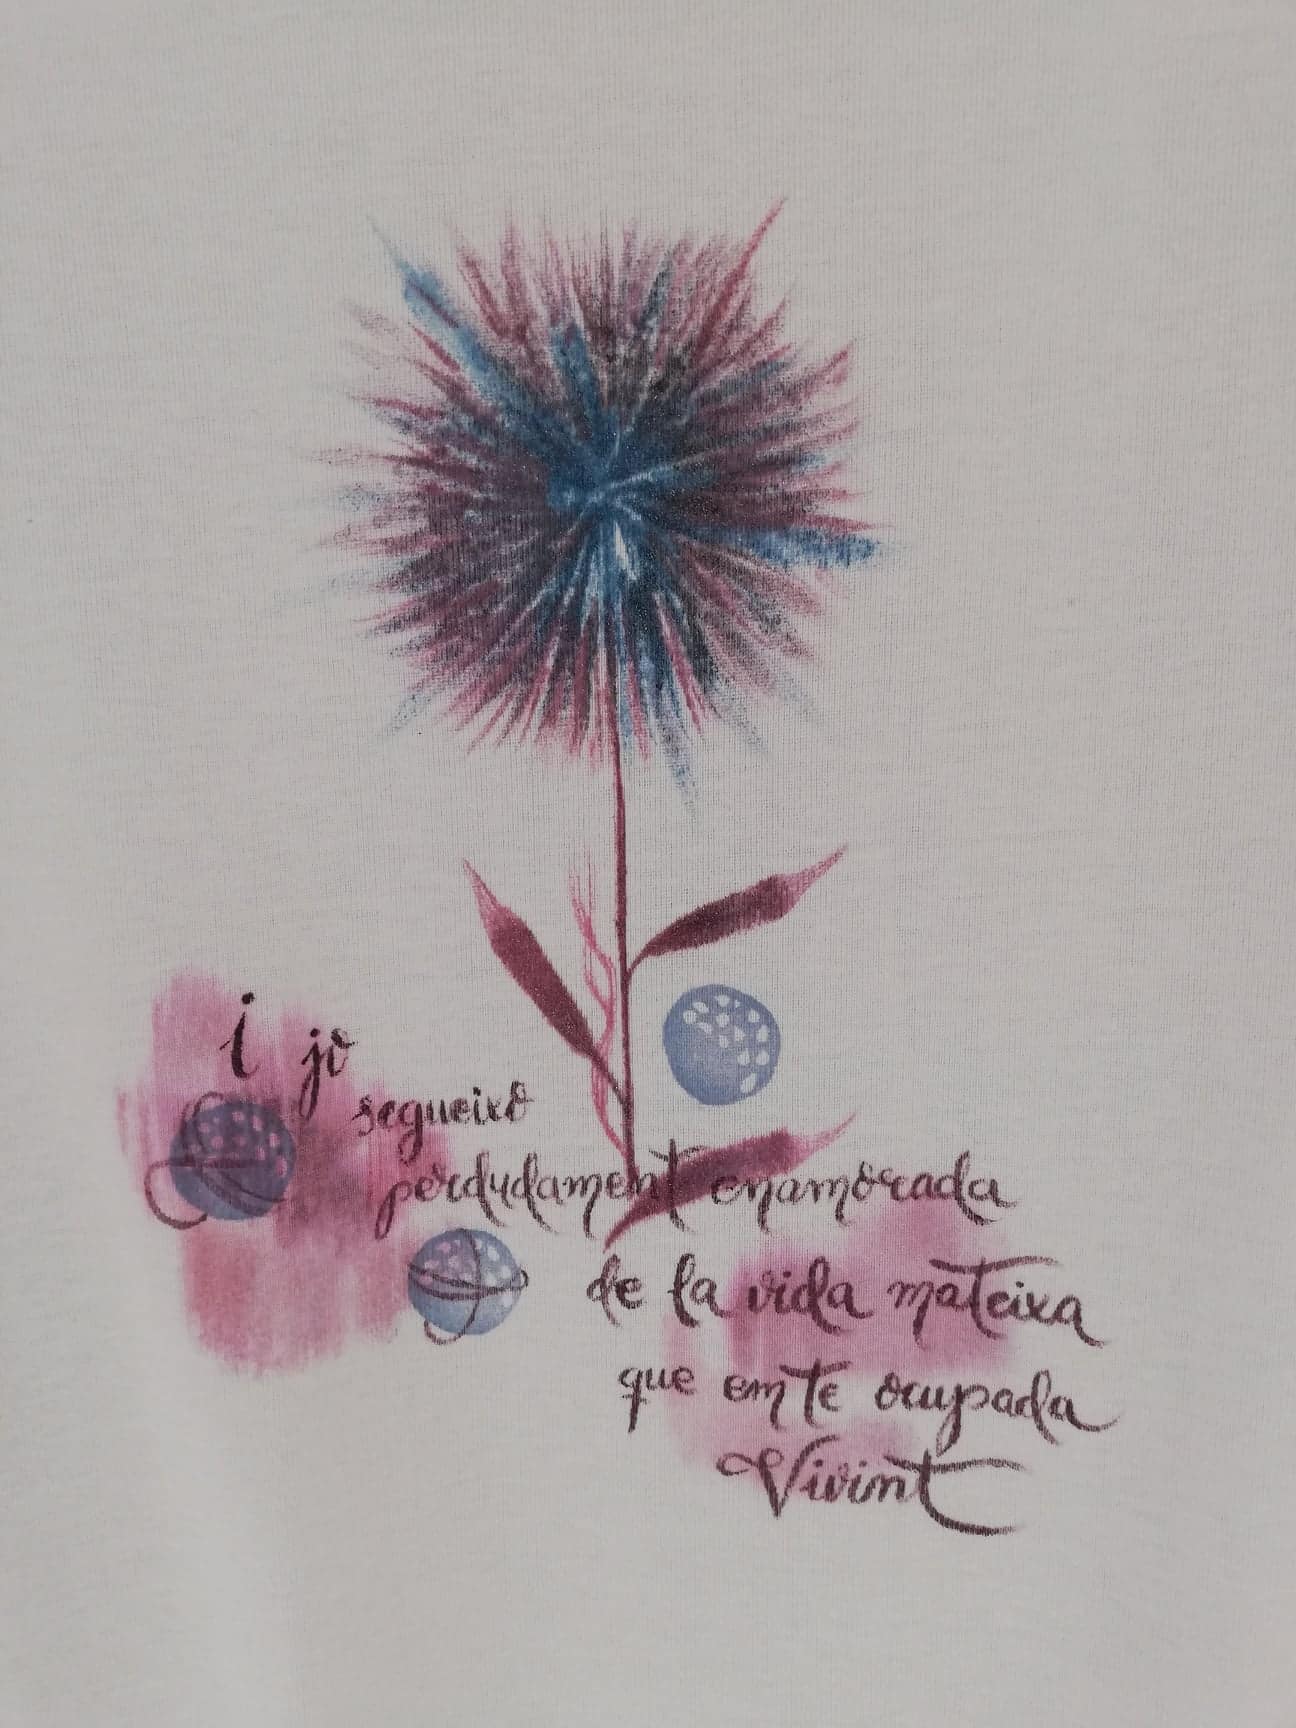 i jo
segueixo
perdudament enamorada
de la vida mateixa
que em te ocupada
Vivint